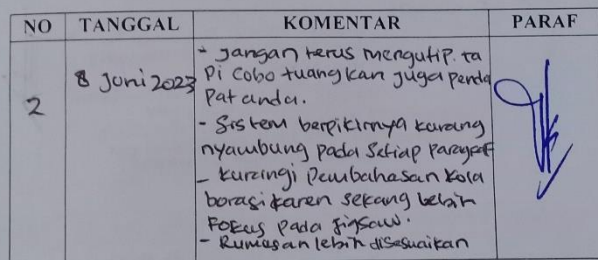 NO TANGGAL KOMENTAR PARAF
2 8 Juni 2023
- Jangan terus mengutip. ta
Pi Cobo tuangkan juga penda
pat anda.
- Sistem berpikirnya kurang
nyambung pada setiap paragraf
- kurangi Pembahasan Kola
borasi karen sekang lebih
Fokus pada Jigsaw.
- Rumusan lebih disesuaikan